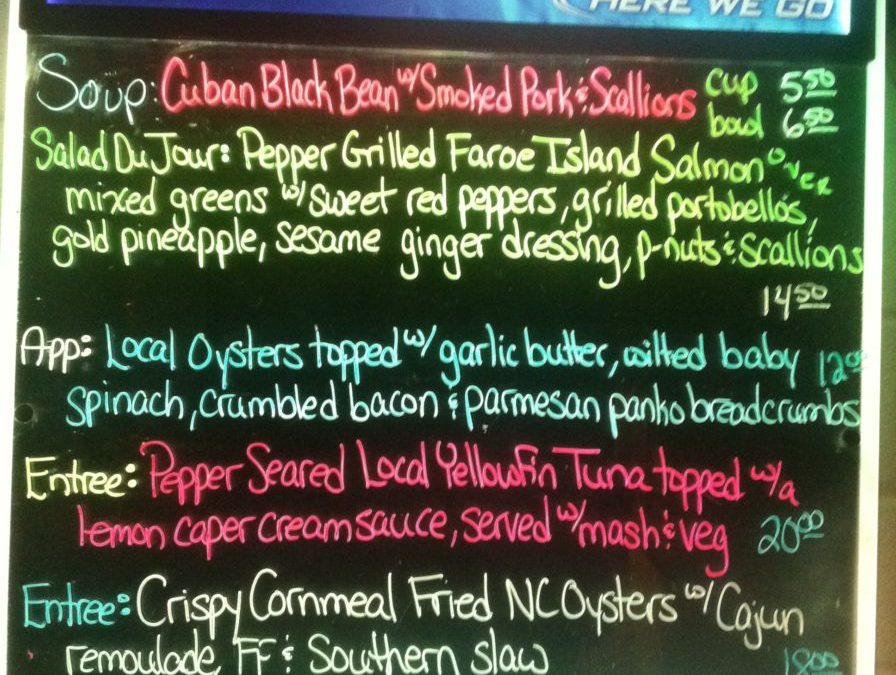 HERE WE GO
Soup: Cuban Black Bean w/ Smoked Pork & Scallions cup 5.50
bowl 6.50
Salad Du Jour: Pepper Grilled Faroe Island Salmon over
mixed greens w/ sweet red peppers, grilled portobellos,
gold pineapple, sesame ginger dressing, p-nuts & Scallions
14.50
App: Local Oysters topped w/ garlic butter, wilted baby 12.00
spinach, crumbled bacon & parmesan panko breadcrumbs
Entree: Pepper Seared Local Yellowfin Tuna topped w/a
lemon caper cream sauce, served w/ mash & veg 20.00
Entree: Crispy Cornmeal Fried NC Oysters w/ Cajun
remoulade, FF & Southern slaw 18.00